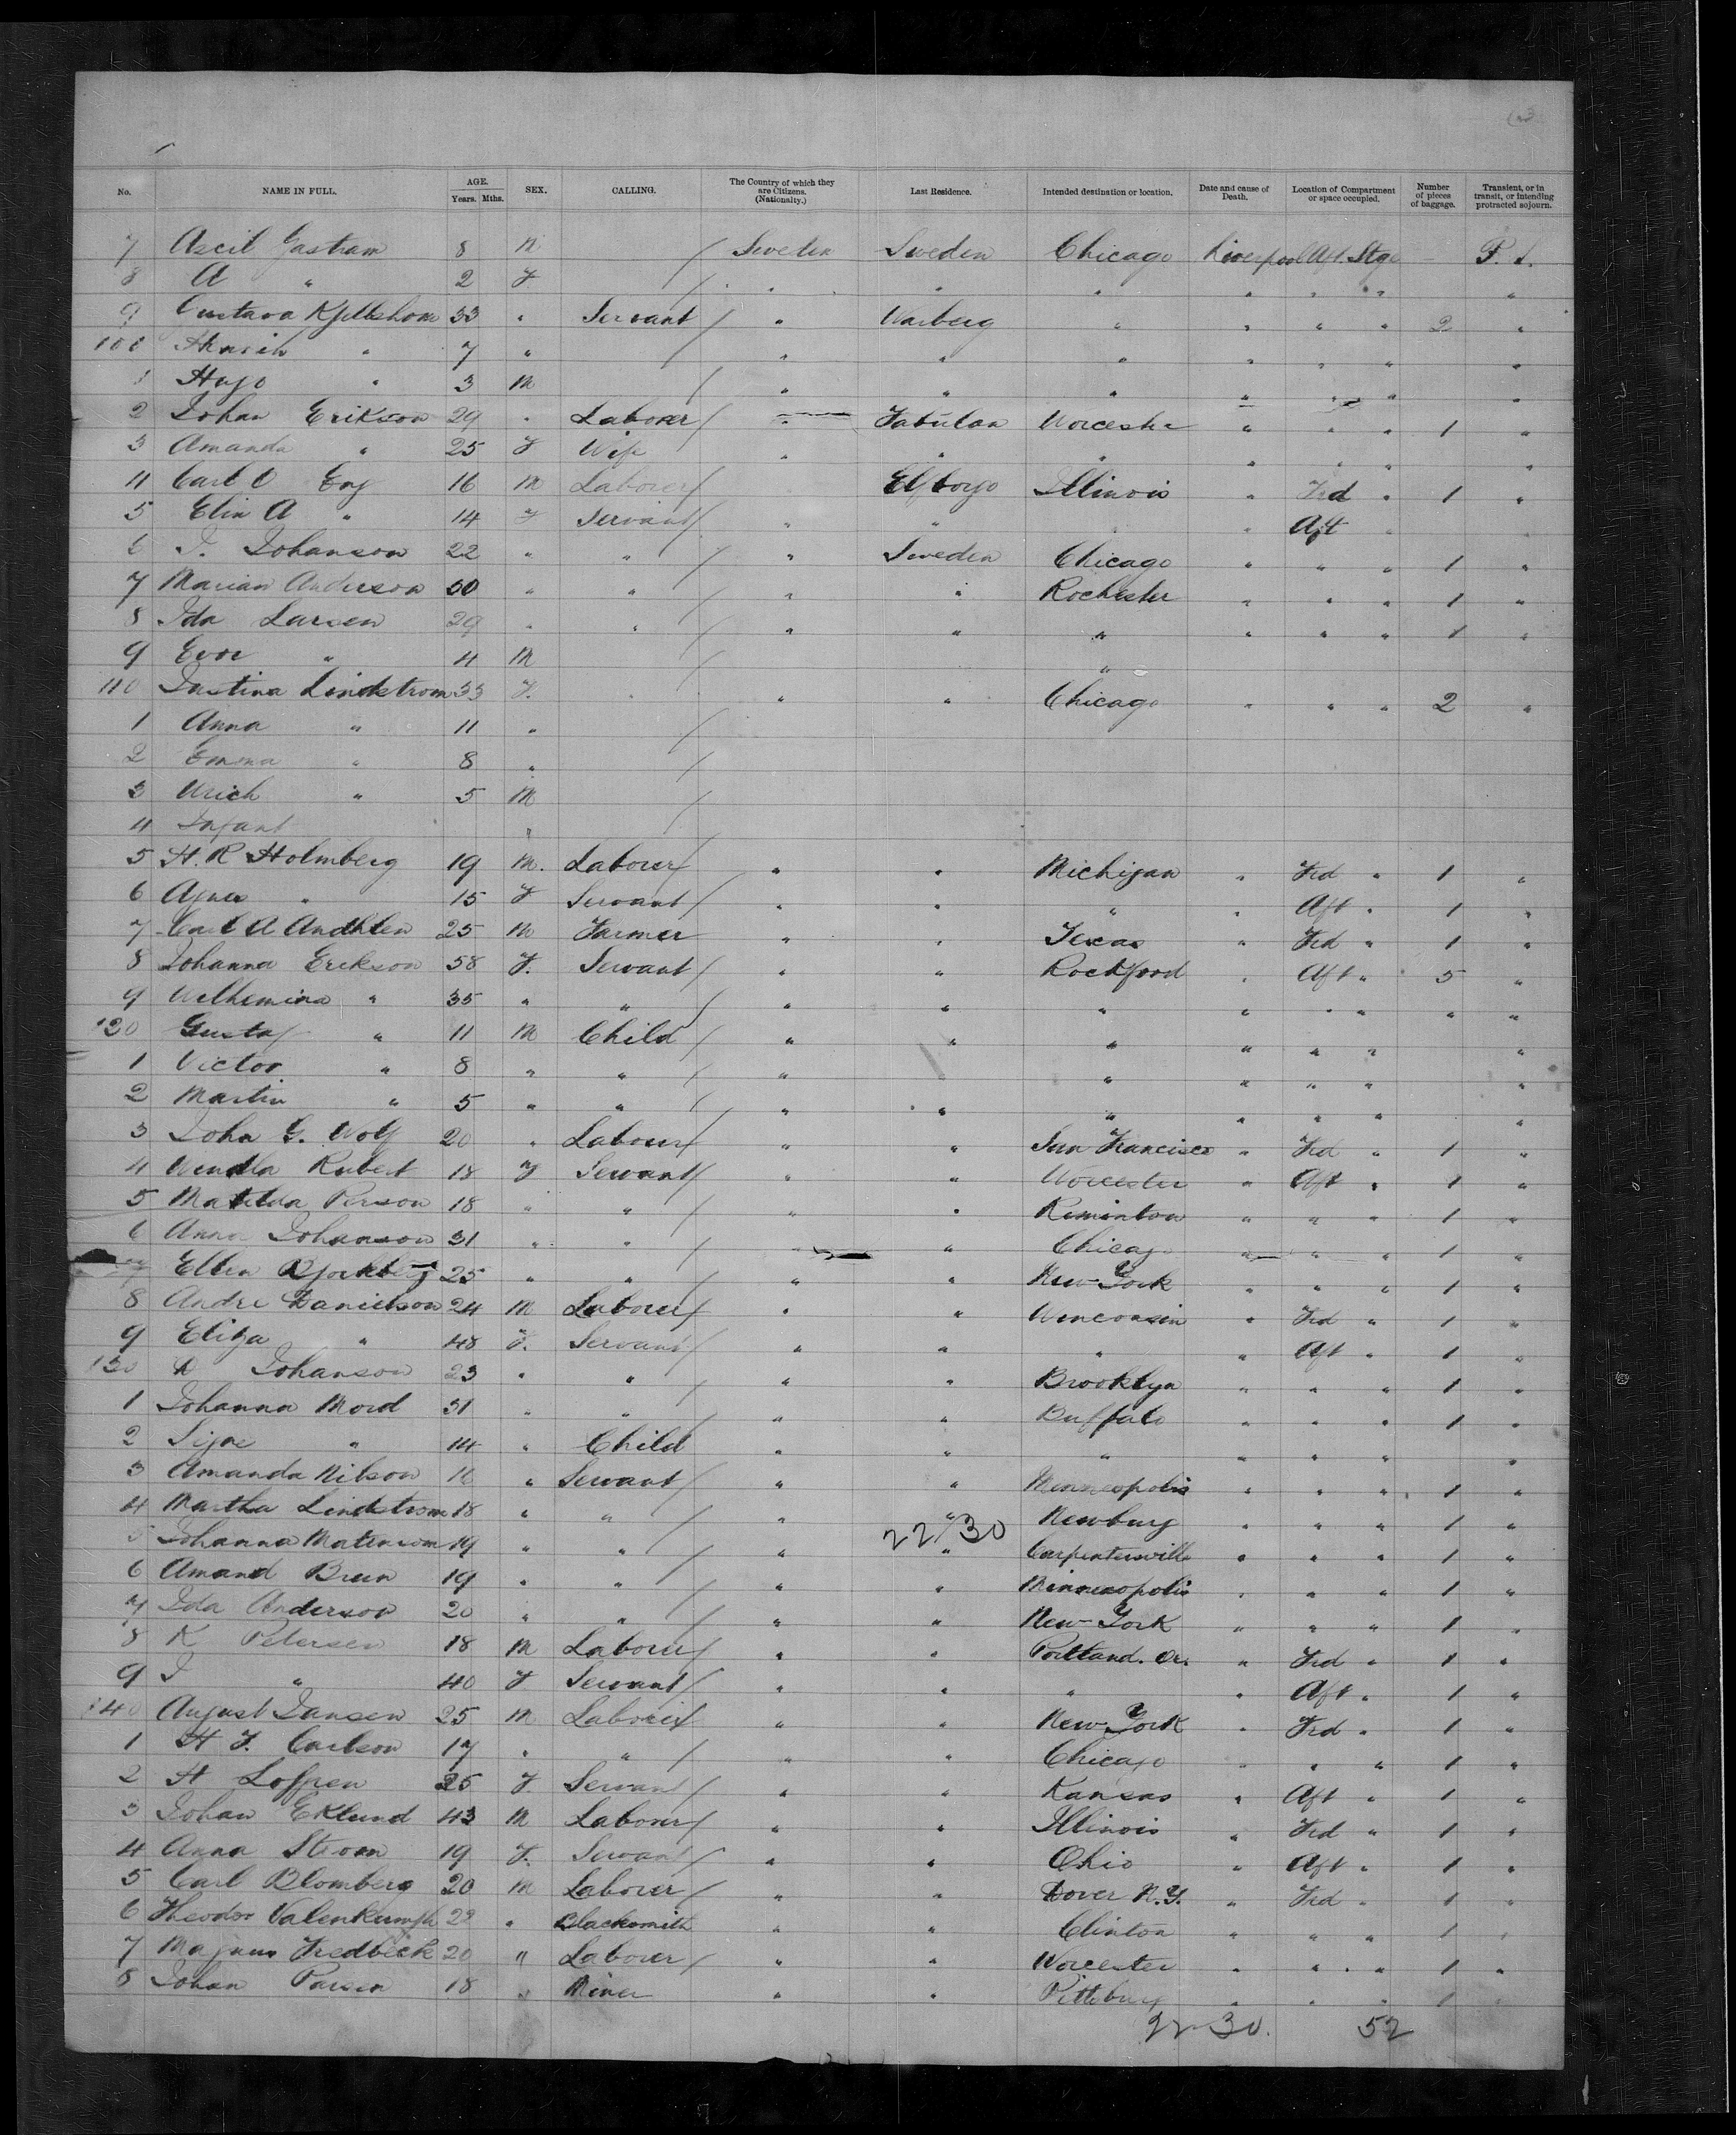 No. NAME IN FULL. AGE. Years. Mths. SEX. CALLING. The Country of which they are Citizens. (Nationalty.) Last Residence. Intended destination or location. Date and cause of Death. Location of Compartment or space occupied. Number of pieces of baggage. Transient, or in transit, or intending protracted sojourn.
7 Ascil Gastram 8 M / Sweden Sweden Chicago Liverpool Aft. Stge P. S.
8 A " 2 F / " " " " " " "
9 Gustava 33 " Servant / " Warberg " " " " 2 "
100 " 7 " / " " " " " " "
1 Hugo " 3 M / " " " " " " "
2 Johan Erikson 29 " Laborer / " Worcester " " " 1 "
3 Amanda " 25 F Wife " " " " " " "
4 Carl O Eng 16 M Laborer / Elfborgo Illinois " Frd " 1 "
5 Elin A " 14 F Servant / " " " Aft "
6 J. Johanson 22 " " / " Sweden Chicago " " " 1 "
7 Marian Anderson 30 " " / " " Rochester " " " 1 "
8 Ida Larsen 29 " " / " " " " " " 1 "
9 " 4 M / "
110 Justina Lindstrom 33 F. " " " Chicago " " " 2 "
1 Anna " 11 " /
2 Emma " 8 " /
3 Urich " 5 M /
4 Infant " /
5 H. R Holmberg 19 M. Laborer / " " Michigan " Frd " 1 "
6 Agnes " 15 F Servant / " " " " Aft " 1 "
7 Carl A Andhlen 25 M Farmer " " Texas " Frd " 1 "
8 Johanna Erikson 58 F. Servant / " " Rockford " Aft " 5 "
9 Wilhemina " 35 " " / " " " " " " " "
120 Gustaf " 11 M Child / " " " " " " "
1 Victor " 8 " " / " " " " " "
2 Martin " 5 " " / " " " " " " "
3 John G. Wolf 20 " Laborer / " " San Francisco " Frd " 1 "
4 Wendla Rubert 18 F Servant / " " Worcester " Aft " 1 "
5 Matilda Person 18 " " / " " Reminton " " " 1 "
6 Anna Johanson 31 " " / " " Chicago " " " 1 "
7 Ellen Bjorkberg 25 " " / " " New York " " " 1 "
8 Andre Danielson 24 M Laborer / " " Winconsin " Frd " 1 "
9 Eliza " 48 F. Servant / " " " " Aft " 1 "
130 Johanson 23 " " / " " Brooklyn " " " 1 "
1 Johanna Mord 31 " " / " " Buffalo " " " 1 "
2 Signe " 14 " Child " " " " " " "
3 Amanda Nilson 16 " Servant / " " Minneopolis " " " 1 "
4 Martha Lindstrom 18 " " / " " Newburg " " " 1 "
22/30
5 Johanna Matenson 19 " " / " " Carpentersville " " " 1 "
6 Amand Breen 19 " " / " " Minneapolis " " " 1 "
7 Ida Anderson 20 " " / " " New York " " " 1 "
8 K Petersen 18 M Laborer / " " Portland. Or. " Frd " 1 "
9 J " 40 F Servant / " " " " Aft " 1 "
140 August Jansen 25 M Laborer / " " New York " Frd " 1 "
1 H F. Carlson 17 " " / " " Chicago " " " 1 "
2 H 25 F. Servant / " " Kansas " Aft " 1 "
3 Johan Eklund 43 M Laborer / " " Illinois " Frd " 1 "
4 Anna Strom 19 F. Servant / " " Ohio " Aft " 1 "
5 Carl Blomberg 20 M Laborer / " " Dover N.Y. " Frd " 1 "
6 Theodor 22 " Blacksmith " " Clinton " " " 1 "
7 Magnus Fredbeck 20 " Laborer / " " Worcester " " " 1 "
8 Johan 18 " Miner " " Pittsburg " " " 1 "
22-30. 52